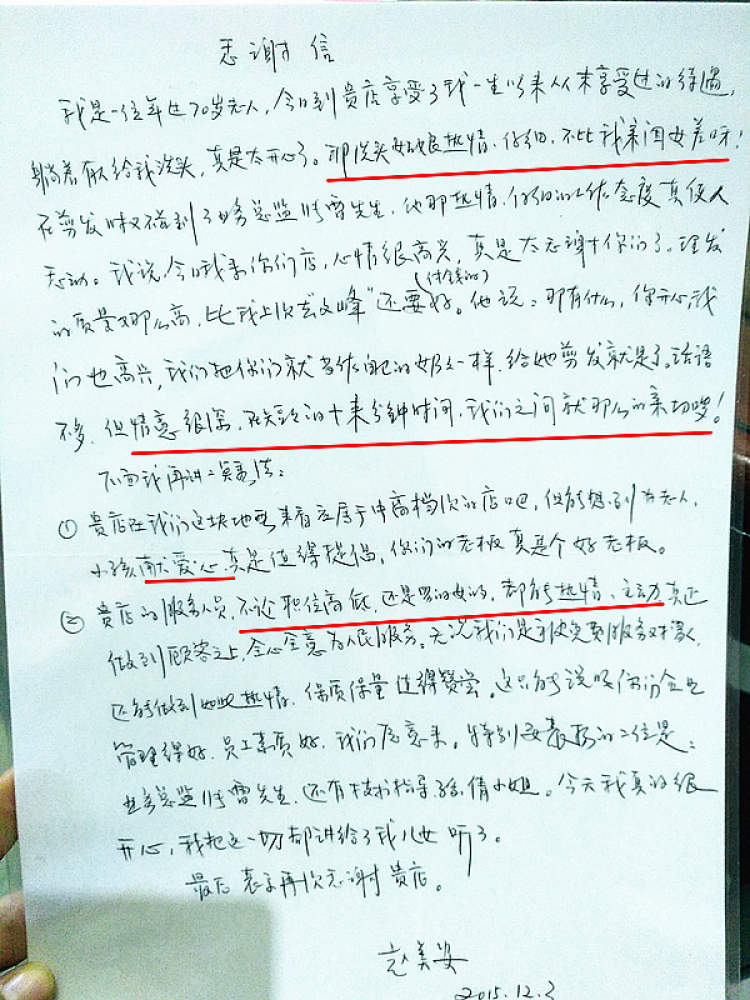 感谢信
我是一位年近70岁老人,今日到贵店享受了我一生以来从未享受过的待遇,
躺着有人给我洗头,真是太开心了。那洗头姑娘热情、仔细,不比我亲闺女差呀!
在剪发时又碰到了业务总监 雷先生,他那热情、仔细的工作态度真使人
感动。我说,今日我来你们店,心情很高兴,真是太感谢你们了。理发
的质量那么高,比我上次去"文峰"(付钱的)还要好。他说:那有什么,你开心我
们也高兴,我们把你们就当作自己的奶奶一样,给她剪发就是了。话语
不多,但情意很深,在短短的十来分钟时间,我们之间就那么的亲切啰!
下面我再讲二点:
① 贵店在我们这块地区来看应属于中高档次的店吧,但能想到为老人、
小孩献爱心真是值得提倡,你们的老板真是个好老板。
② 贵店的服务人员,不论职位高低,还是男的女的,都能热情、主动真正
做到顾客之上,全心全意为人民服务。尤况我们是被免费服务对象,
还能做到如此热情、保质保量值得赞赏。这只能说明你们企业
管理得好,员工素质好,我们愿意来。特别要表扬的二位是:
业务总监 雷先生,还有技术指导 倩小姐。今天我真的很
开心,我把这一切都讲给了我儿女听了。
最后表示再次感谢贵店。
赵美安
2015.12.3